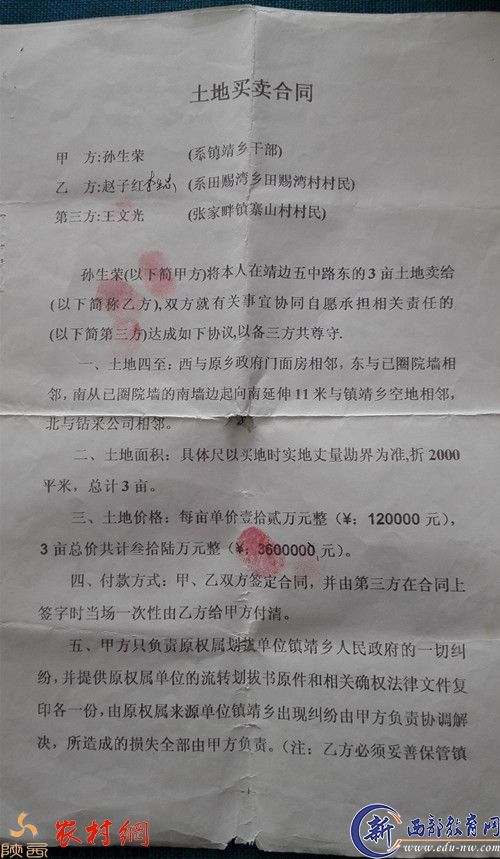 土地买卖合同
甲　方:孙生荣　(系镇靖乡干部)
乙　方:赵子红　(系田赐湾乡田赐湾村村民)
第三方:王文光　(张家畔镇寨山村村民)
孙生荣(以下简甲方)将本人在靖边五中路东的3亩土地卖给
(以下简称乙方),双方就有关事宜协同自愿承担相关责任的
(以下简第三方)达成如下协议,以备三方共尊守.
一、土地四至：西与原乡政府门面房相邻，东与已圈院墙相
邻，南从已圈院墙的南墙边起向南延伸11米与镇靖乡空地相邻，
北与钻采公司相邻。
二、土地面积：具体尺以买地时实地丈量勘界为准,折2000
平米，总计3亩。
三、土地价格：每亩单价壹拾贰万元整（¥：120000元），
3亩总价共计叁拾陆万元整（¥：3600000元）。
四、付款方式：甲、乙双方签定合同，并由第三方在合同上
签字时当场一次性由乙方给甲方付清。
五、甲方只负责原权属划拔单位镇靖乡人民政府的一切纠
纷,并提供原权属单位的流转划拔书原件和相关确权法律文件复
印各一份，由原权属来源单位镇靖乡出现纠纷由甲方负责协调解
决，所造成的损失全部由甲方负责。（注：乙方必须妥善保管镇
- 1 -
陕西 农村網
新 西部教育网
www.edu-nw.com